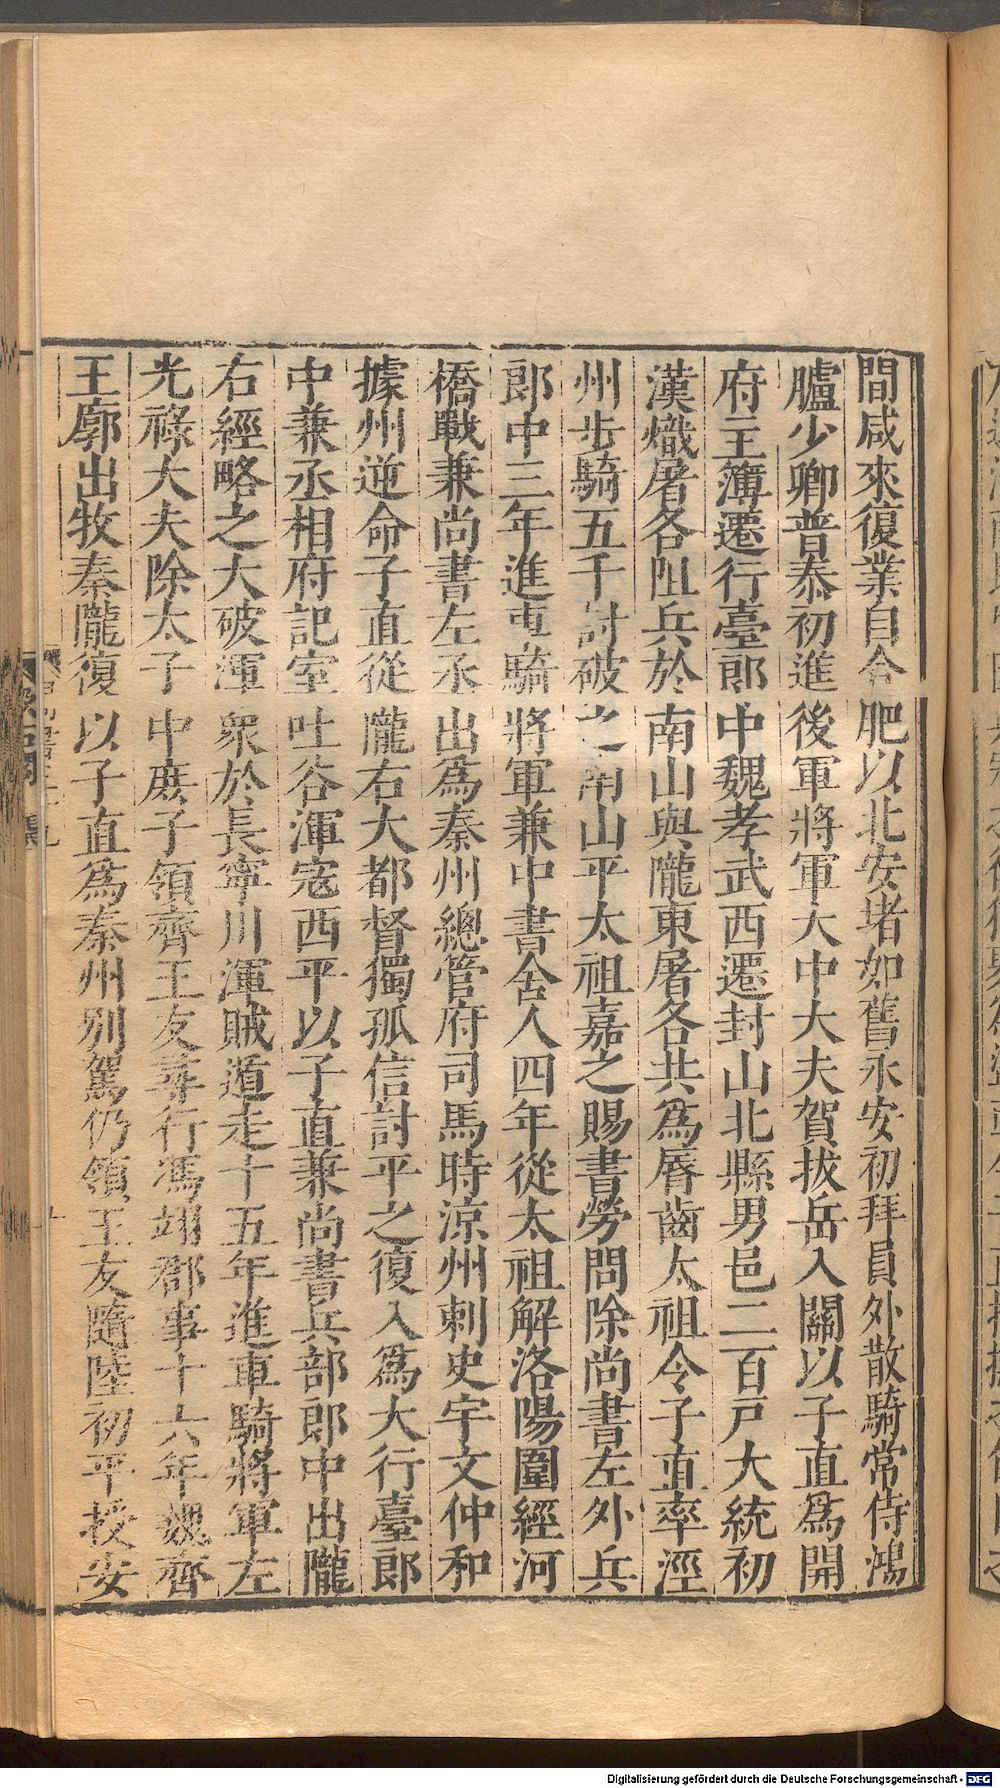 間咸來復業自合肥以北安堵如舊永安初拜員外散騎常侍鴻
臚少卿普泰初進後軍將軍大中大夫賀拔岳入關以子直爲開
府主簿遷行臺郎中魏孝武西遷封山北縣男邑二百戸大統初
漢熾屠各阻兵於南山與隴東屠各共爲脣齒太祖令子直率涇
州步騎五千討破之南山平太祖嘉之賜書勞問除尚書左外兵
郎中三年進車騎將軍兼中書舍人四年從太祖解洛陽圍經河
橋戰兼尚書左丞出爲秦州總管府司馬時涼州刺史宇文仲和
據州逆命子直從隴右大都督獨孤信討平之復入爲大行臺郎
中兼丞相府記室吐谷渾寇西平以子直兼尚書兵部郎中出隴
右經略之大破渾衆於長寧川渾賊遁走十五年進車騎將軍左
光祿大夫除太子中庶子領齊王友尋行馮翊郡事十六年魏齊
王廓出牧秦隴復以子直爲秦州別駕仍領王友隨陸初平授安
Digitalisierung gefördert durch die Deutsche Forschungsgemeinschaft - DFG